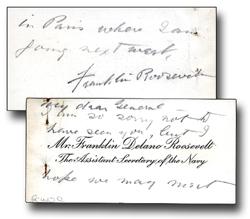 in Paris where I am
going next week,
Franklin Roosevelt
My dear General
I am so sorry not to
have seen you, but I
Mr. Franklin Delano Roosevelt
The Assistant Secretary of the Navy
hope we may meet